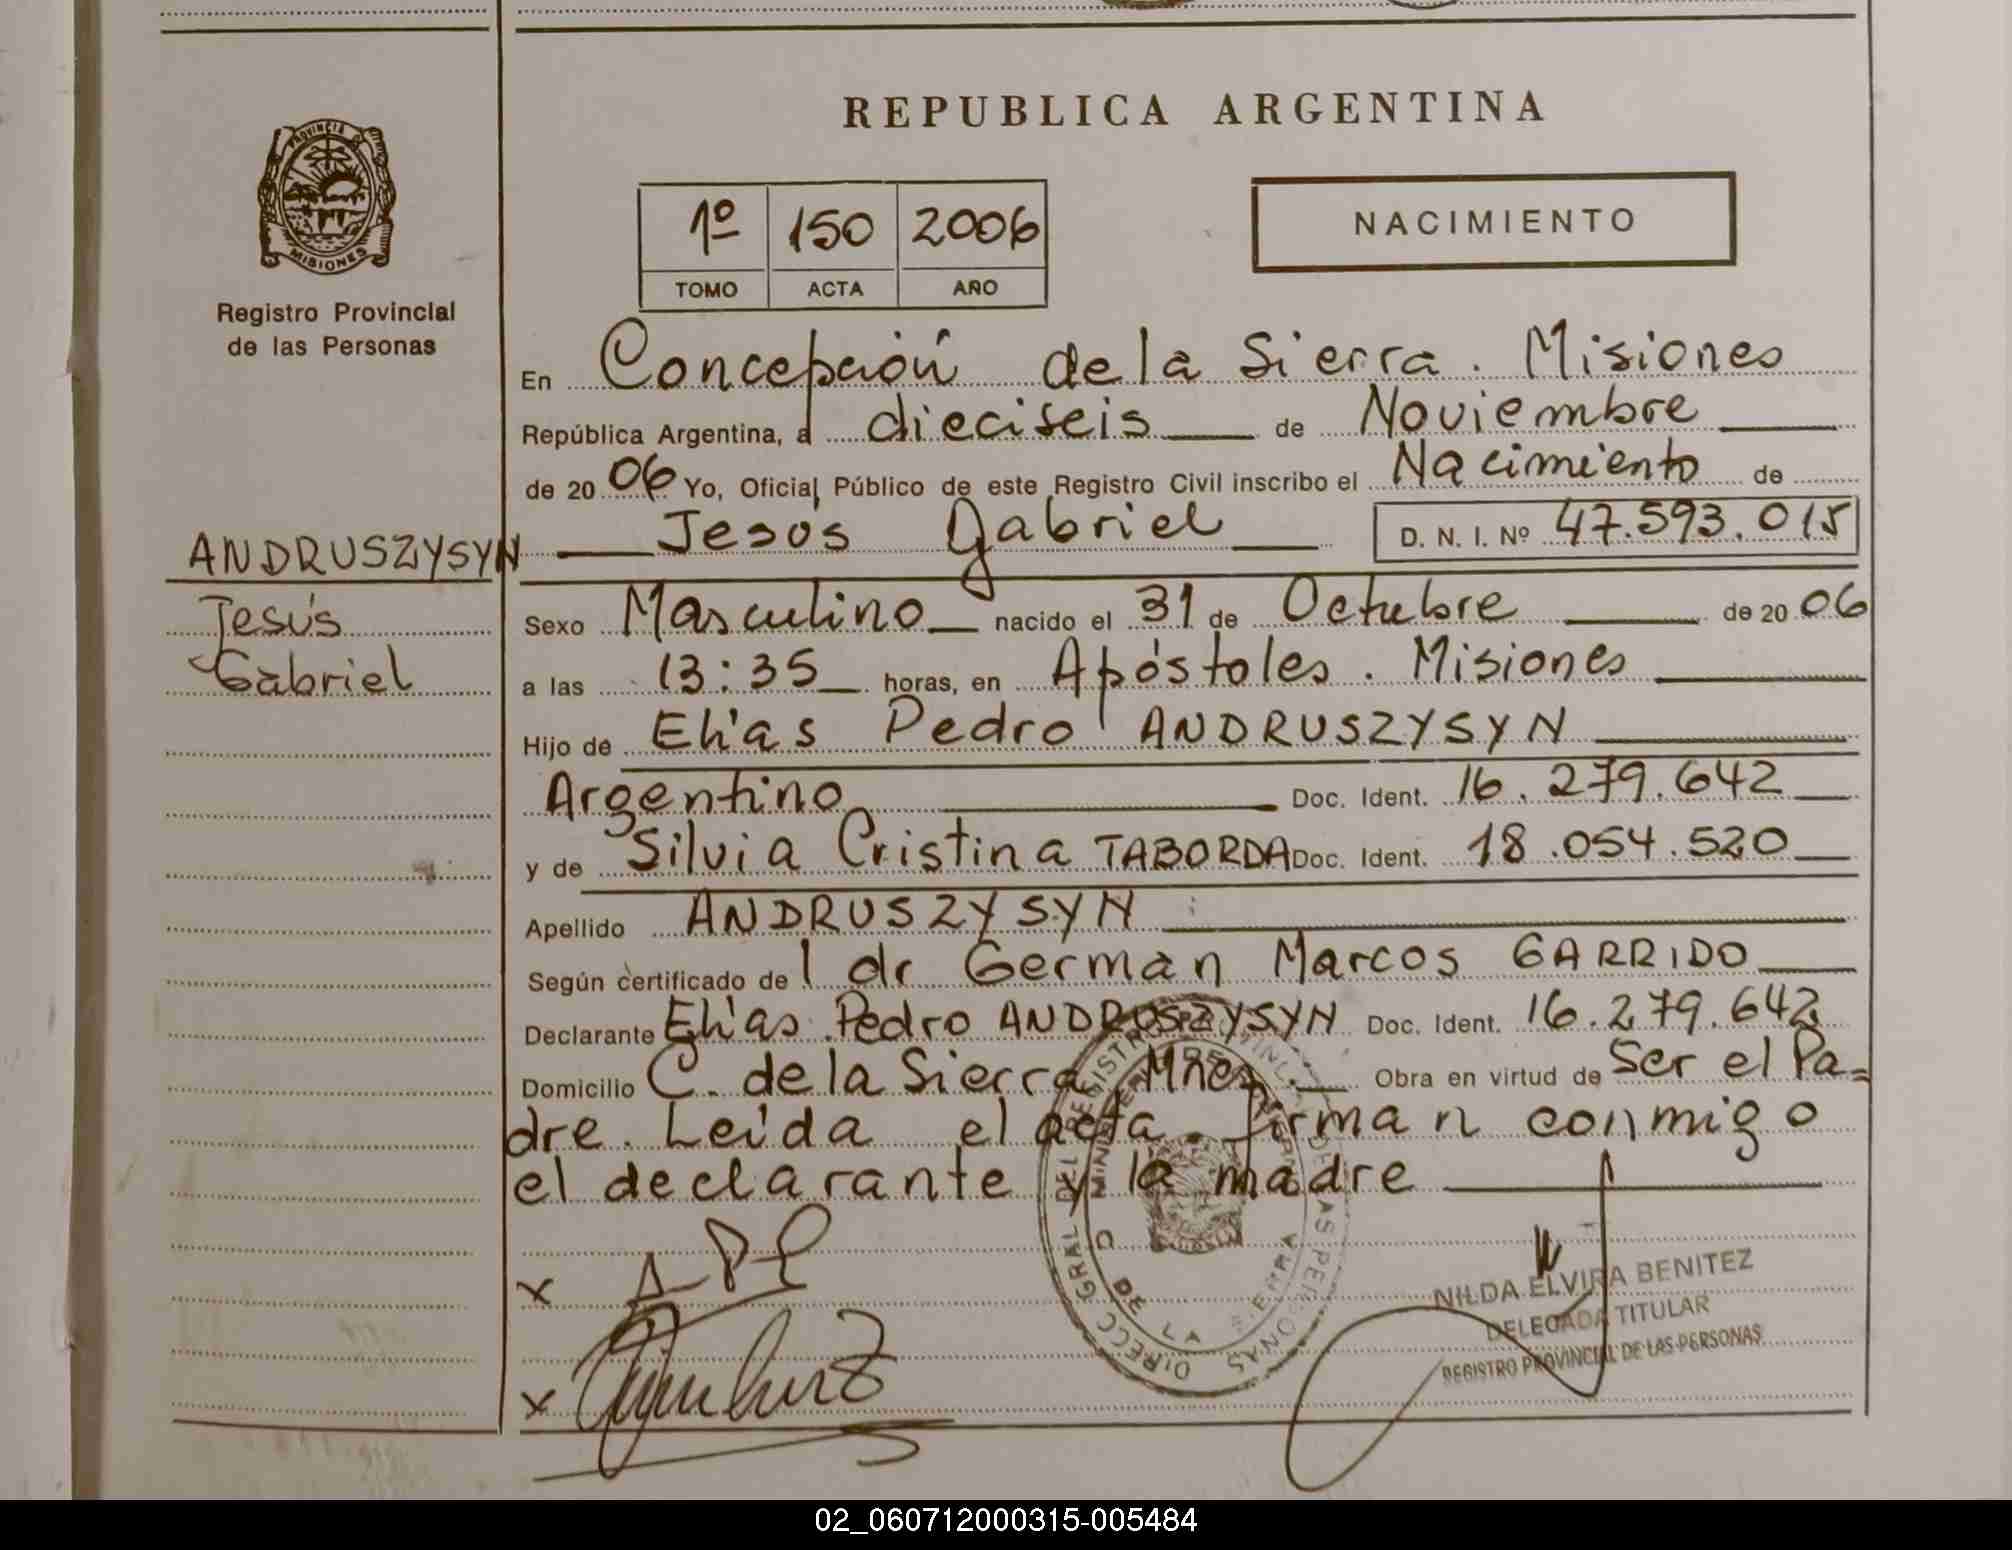 REPUBLICA ARGENTINA
PROVINCIA
MISIONES
Registro Provincial
de las Personas
1º 150 2006
TOMO ACTA AÑO
NACIMIENTO
En Concepción de la Sierra. Misiones
República Argentina, a dieciseis de Noviembre
de 2006 Yo, Oficial Público de este Registro Civil inscribo el Nacimiento de
Jesús Gabriel D. N. I. Nº 47.593.015
ANDRUSZYSYN
Jesús
Gabriel
Sexo Masculino nacido el 31 de Octubre de 2006
a las 13:35 horas, en Apóstoles. Misiones
Hijo de Elías Pedro ANDRUSZYSYN
Argentino Doc. Ident. 16.279.642
y de Silvia Cristina TABORDA Doc. Ident. 18.054.520
Apellido ANDRUSZYSYN
Según certificado de l dr German Marcos GARRIDO
Declarante Elías Pedro ANDRUSZYSYN Doc. Ident. 16.279.642
Domicilio C. de la Sierra Mnes. Obra en virtud de Ser el Pa=
dre. Leída el acta firman conmigo
el declarante y la madre
x
x
NILDA ELVIRA BENITEZ
DELEGADA TITULAR
REGISTRO PROVINCIAL DE LAS PERSONAS
02_060712000315-005484